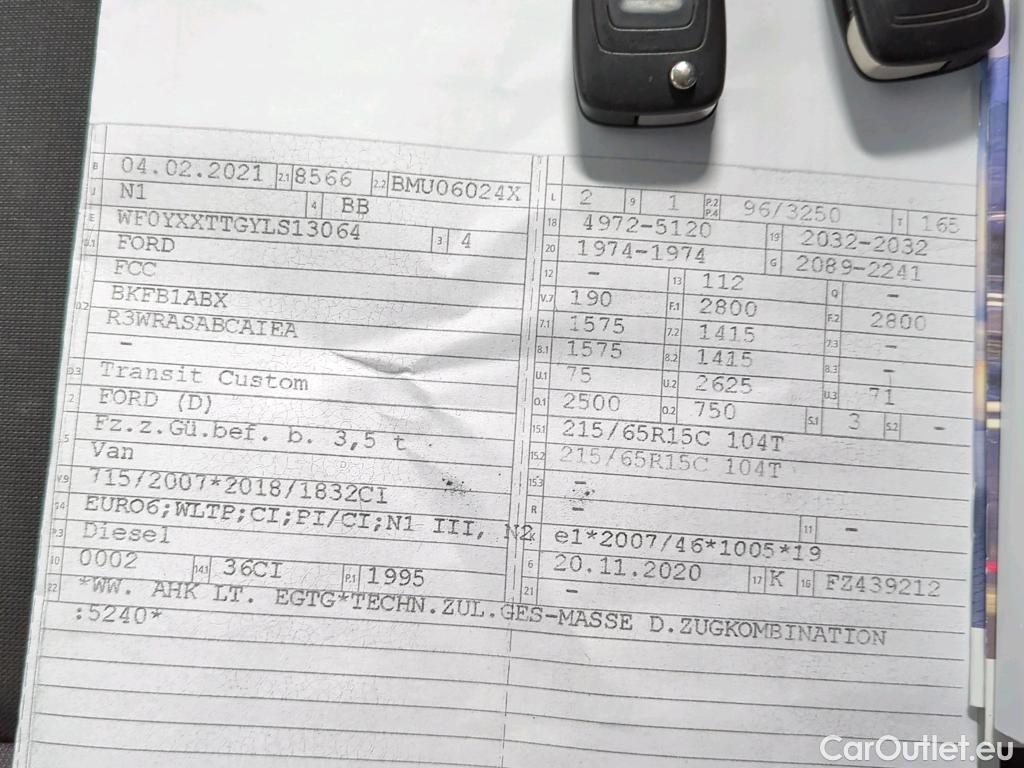 B 04.02.2021 2.1 8566 2.2 BMU06024X
J N1 4 BB
E WF0YXXTTGYLS13064 3 4
D.1 FORD
FCC
D.2 BKFB1ABX
R3WRASABCAIEA
–
D.3 Transit Custom
2 FORD (D)
5 Fz.z.Gü.bef. b. 3,5 t
Van
V.9 715/2007*2018/1832CI
14 EURO6;WLTP;CI;PI/CI;N1 III, N2
P.3 Diesel
10 0002 14.1 36CI P.1 1995
L 2 9 1 P.2 P.4 96/3250 T 165
18 4972-5120 19 2032-2032
20 1974-1974 G 2089-2241
12 – 13 112 Q –
V.7 190 F.1 2800 F.2 2800
7.1 1575 7.2 1415 7.3 –
8.1 1575 8.2 1415 8.3 –
U.1 75 U.2 2625 U.3 71
O.1 2500 O.2 750 S.1 3 S.2 –
15.1 215/65R15C 104T
15.2 215/65R15C 104T
15.3 –
R – 11 –
K e1*2007/46*1005*19
6 20.11.2020 17 K 16 FZ439212
21 –
22 *WW. AHK LT. EGTG*TECHN.ZUL.GES-MASSE D.ZUGKOMBINATION
:5240*
CarOutlet.eu